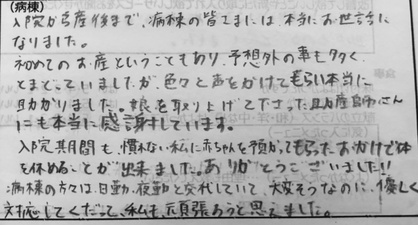 (病棟)
入院から産後まで、病棟の皆さまには本当にお世話に
なりました。
初めてのお産ということもあり、予想外の事も多く、
とまどっていましたが、色々と声をかけてもらい本当に
助かりました。娘を取り上げて下さった助産師さん
にも本当に感謝しています。
入院期間も、慣れない私に赤ちゃんを預かってもらったおかげで体
を休めることが出来ました。ありがとうございました!!
病棟の方々は、日勤、夜勤と交代していて、大変そうなのに、優しく
対応してくださって、私も頑張ろうと思えました。